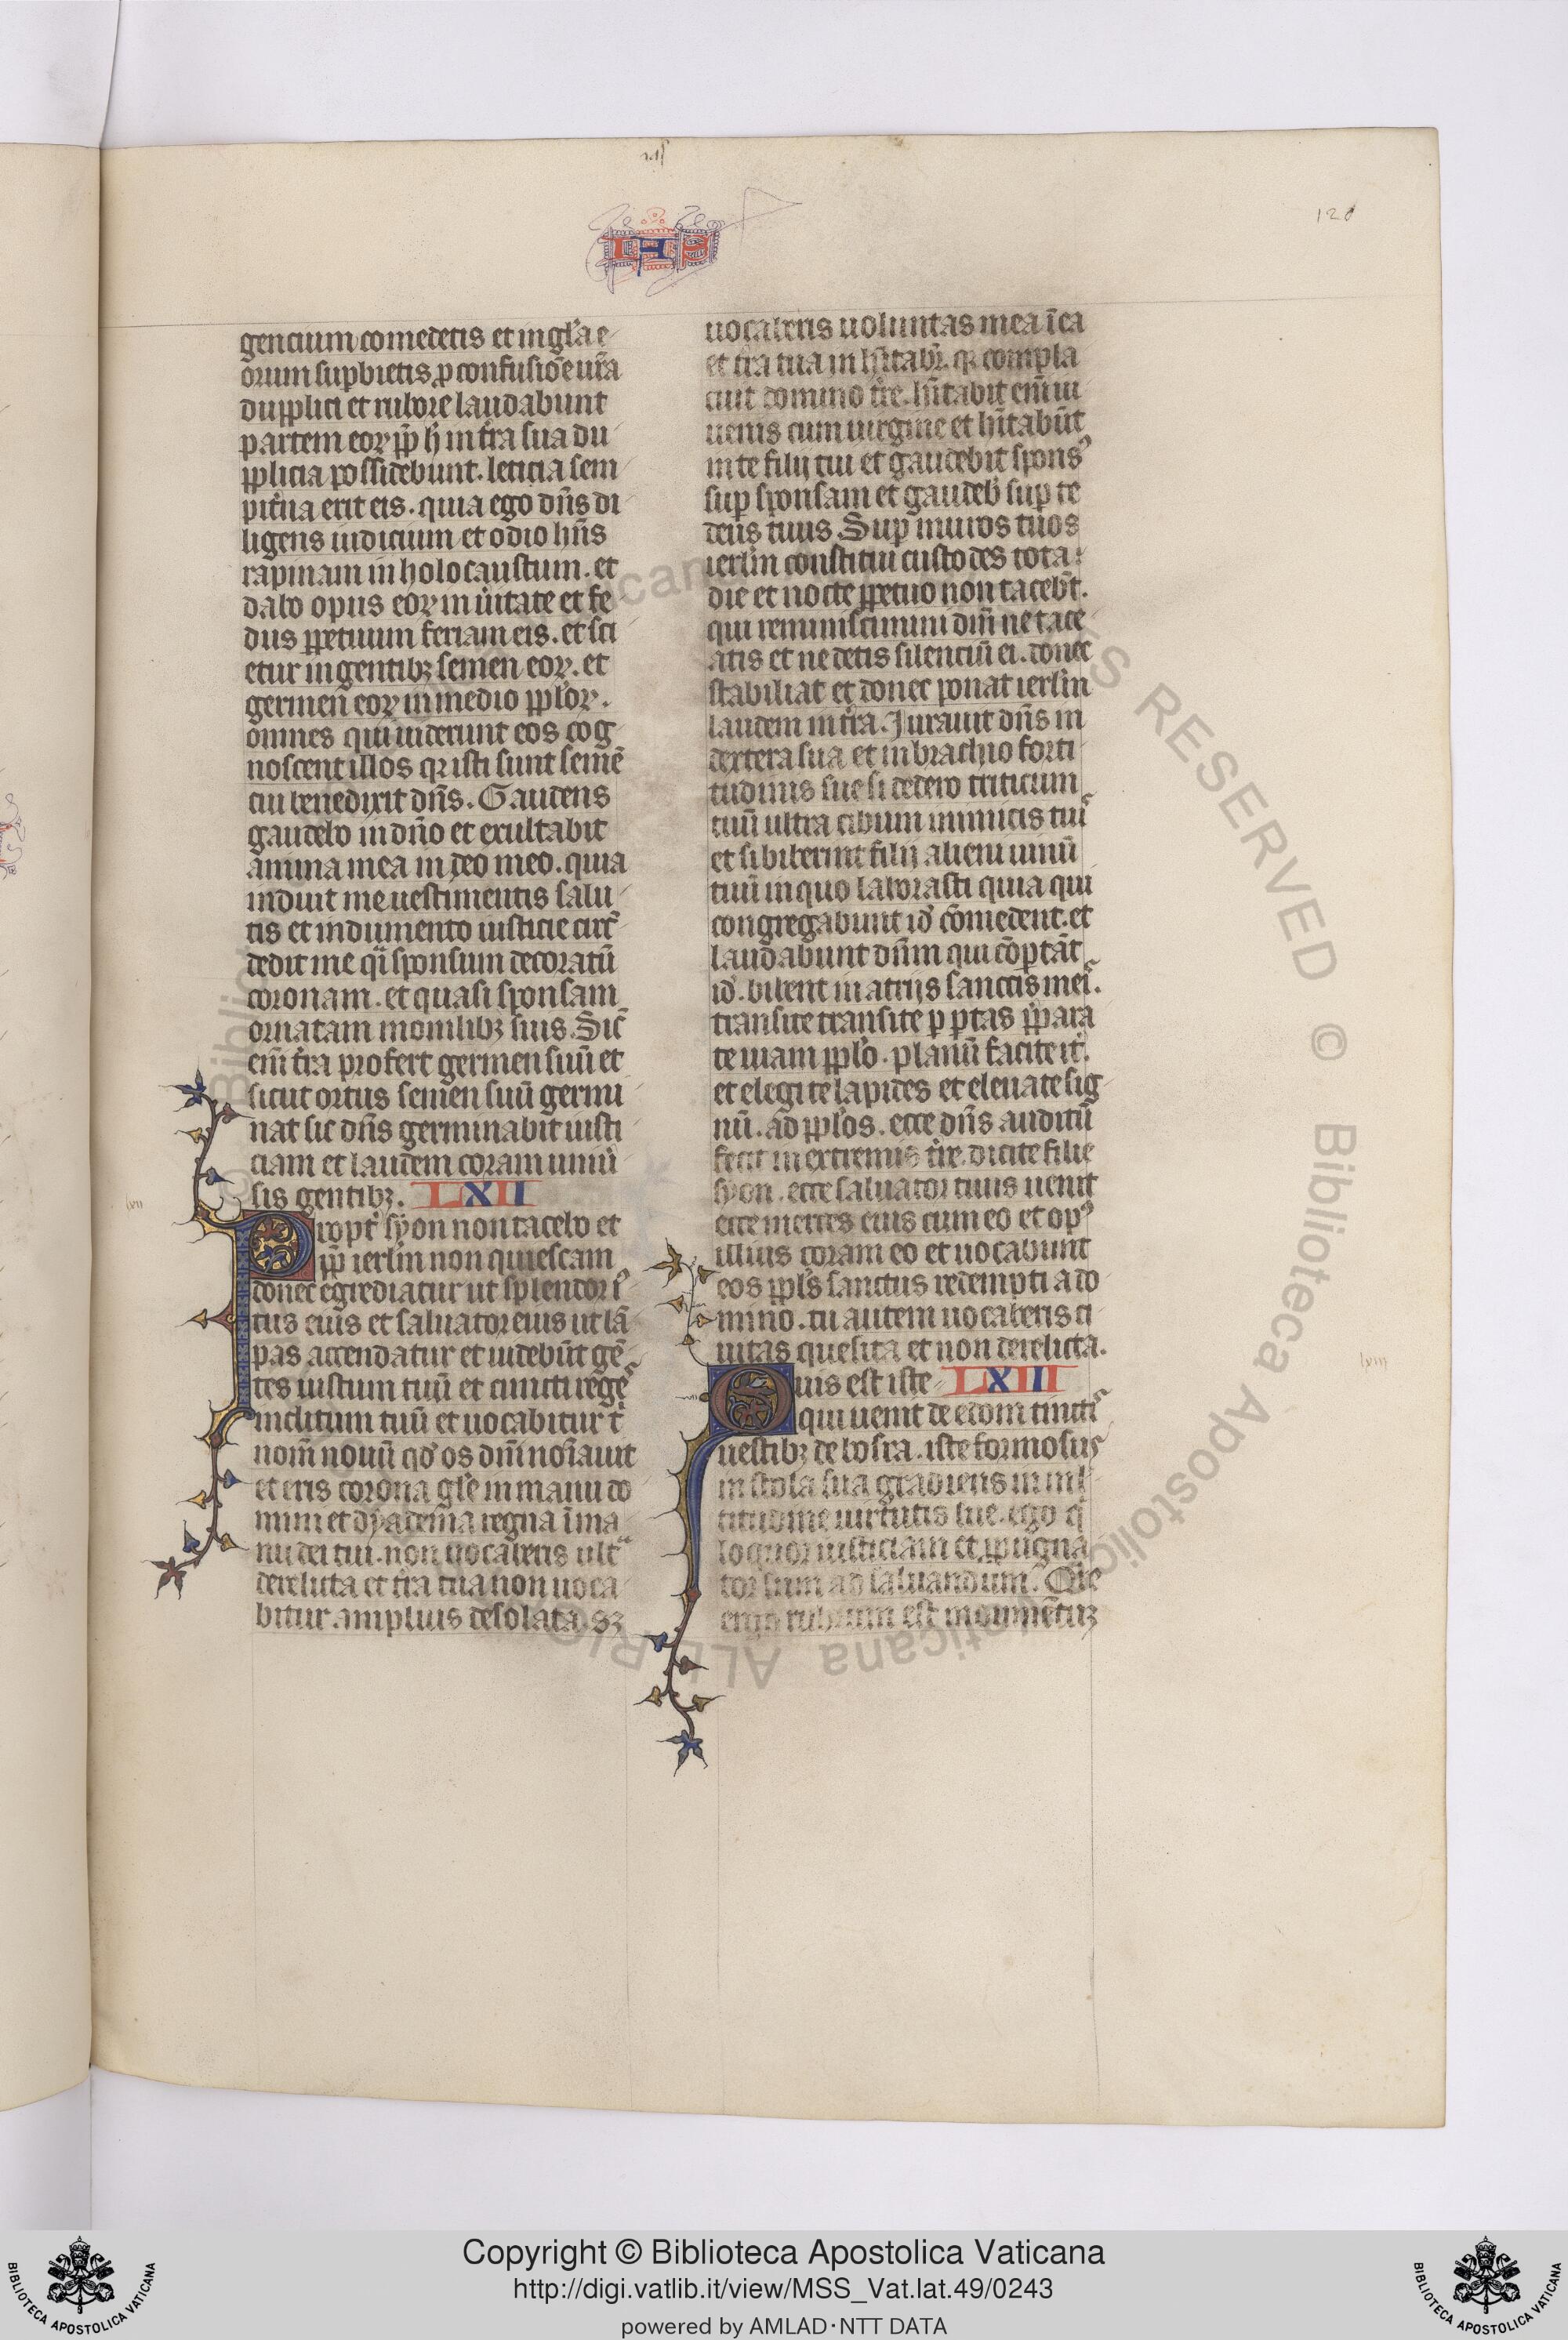 IAS
120
gencium comedetis et in gl̃a e
orum supbietis. ꝓ confusiõe ur̃a
dupplici et rubore laudabunt
partem eoꝝ pp̃ h̃ in tr̃a sua du
pplicia possidebunt. leticia sem
pit̃na erit eis. quia ego dñs di
ligens iudicium et odio hñs
rapinam in holocaustum. et
dabo opus eoꝝ in ũitate et fe
dus ppetuum feriam eis. et sci
etur in gentibꝫ semen eoꝝ. et
germen eoꝝ in medio pplõꝝ.
omnes qui uiderunt eos cog
noscent illos qꝛ isti sunt semẽ
cui benedixit dñs. Gaudens
gaudebo in dño et exultabit
anima mea in deo meo. quia
induit me uestimentis salu
tis et indumento iusticie circ̃
dedit me q̃i sponsum decoratũ
coronam. et quasi sponsam
ornatam monilibꝫ suis. Sic̃
eñi tr̃a profert germen suũ et
sicut ortus semen suũ germi
nat sic dñs germinabit iusti
ciam et laudem coram uniũ
sis gentibꝫ. LXII
Propt̃ syon non tacebo et
pp̃ ierlm̃ non quiescam
donec egrediatur ut splendor i
tus eius et saluator eius ut lã
pas accendatur et uidebũt gẽ
tes iustum tuũ et cuncti regẽ
inclitum tuũ et uocabitur t̃
nom̃ nouũ qd̃ os dm̃ noĩauit
et eris corona gl̃e in manu do
mini et dyadema regna ĩ ma
nu dei tui. non uocaberis ult̃
derelicta et tr̃a tua non uoca
bitur amplius desolata. sꝫ
uocaberis uoluntas mea ĩ ea
et tr̃a tua inhĩtabr̃. qꝛ compla
cuit domino tr̃e. hĩtabit eñi iu
uenis cum uirgine et hĩtabũt
in te filij tui et gaudebit spons
sup sponsam et gaudeb̃ sup te
deus tuus. Sup muros tuos
ierlm̃ constitui custodes tota
die et nocte ppetuo non taceb̃t.
qui reminiscimini dm̃ ne tace
atis et ne detis silenciũ ei. donec
stabiliat et donec ponat ierlm̃
laudem in tr̃a. Jurauit dñs in
dextera sua et in brachio forti
tudinis sue si dedero triticum
tuũ ultra cibum inimicis tui
et si biberint filij alieni uinũ
tuũ in quo laborasti quia qui
congregabunt id̃ cõmedent. et
laudabunt dñm qui cõptãt
id̃. bibent in atrijs sanctis mei.
transite transite p ptas p̃para
te uiam pplõ. planũ facite it̃.
et elegite lapides et eleuate sig
nũ. ad pplõs. ecce dñs auditũ
fecit in extremis tr̃e. dicite filie
syon. ecce saluator tuus uenit
ecce merces eius cum eo et op
illius coram eo et uocabunt
eos ppl̃s sanctus redempti a do
mino. tu autem uocaberis ci
uitas quesita et non derelicta.
Quis est iste LXIII
qui uenit de edom tinct
uestibꝫ de bosra. iste formosus
in stola sua gradiens in ml̃
titudine uirtutis sue. ego q̃
loquor iusticiam et ppugna
tor sum ad saluandum. Qre
ergo rubrum est indumẽtũ
lxii
lxiii
Copyright © Biblioteca Apostolica Vaticana
http://digi.vatlib.it/view/MSS_Vat.lat.49/0243
powered by AMLAD·NTT DATA
BIBLIOTECA APOSTOLICA VATICANA
BIBLIOTECA APOSTOLICA VATICANA